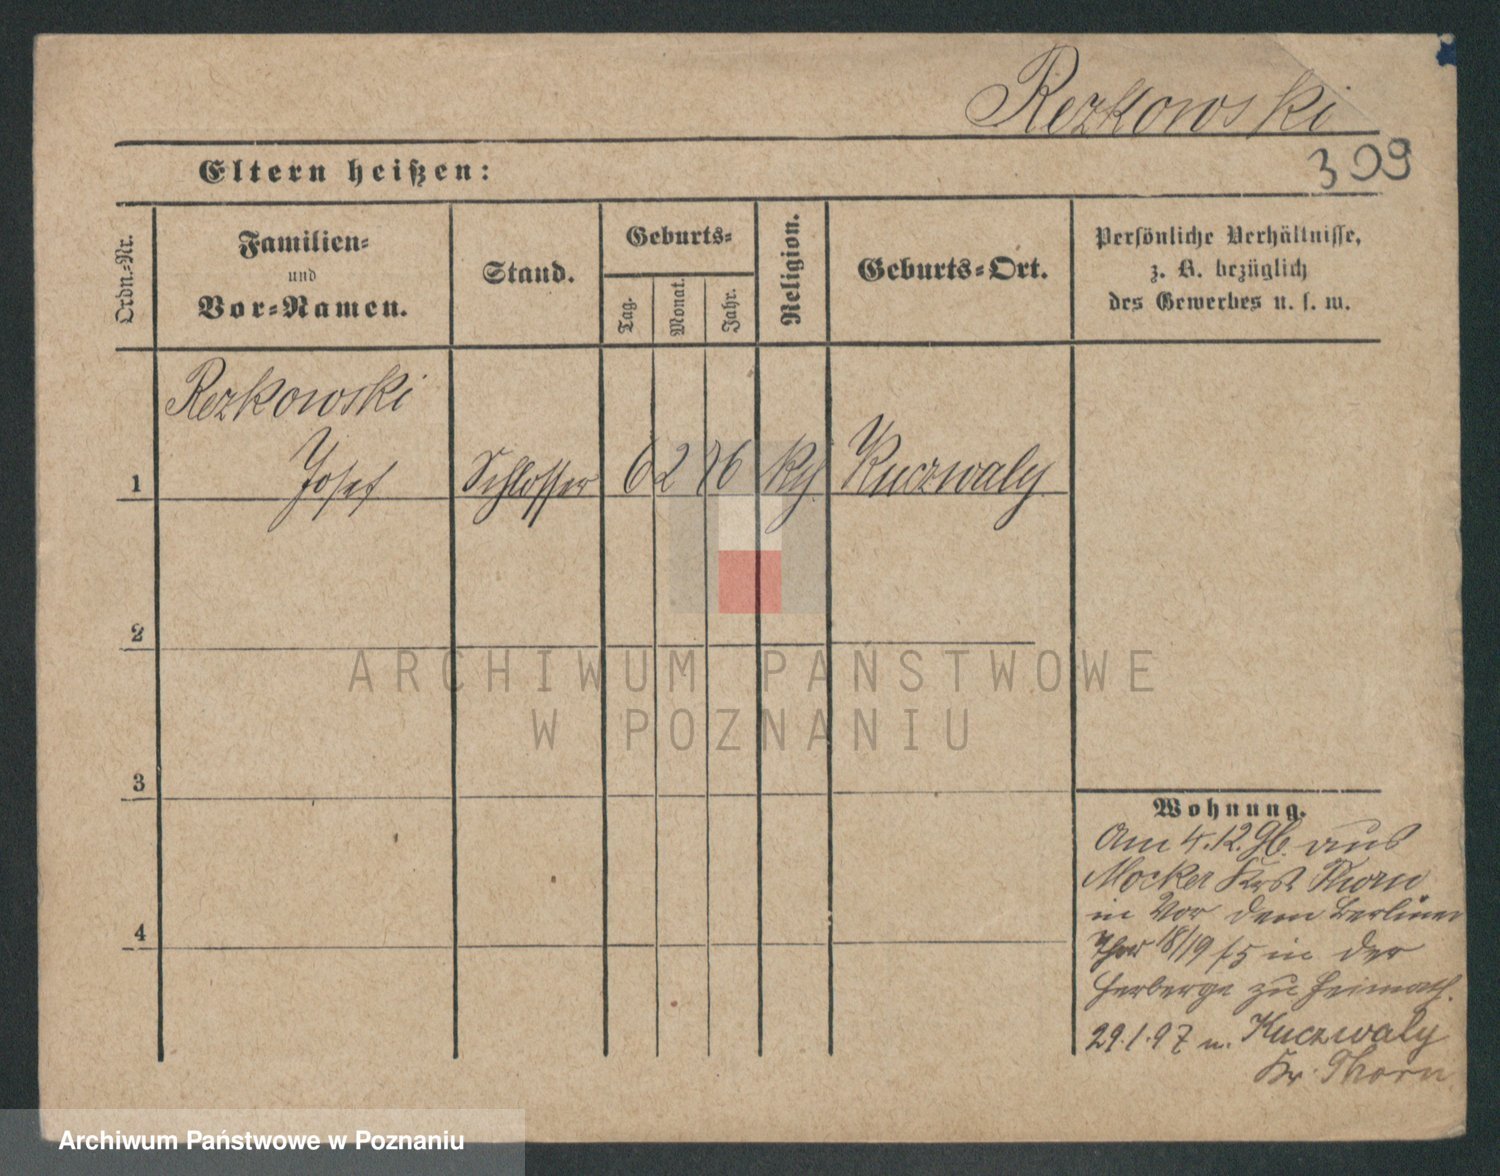 Rezkowski
309
Eltern heißen:
Ordn.-Nr.
Familien-
und
Vor-Namen.
Stand.
Geburts-
Tag.
Monat.
Jahr.
Religion.
Geburts-Ort.
Persönliche Verhältnisse,
z. B. bezüglich
des Gewerbes u. s. w.
Rezkowski
1 Josef Schlosser 6 2 76 Kuczwaly
2
3
4
Wohnung.
Am 4.12.96. aus
Mocker Thorn
in Vor dem Berliner
Thor 18/19 in der
Herberge zu Heimath.
29.1.97 n. Kuczwaly
Kr. Thorn
ARCHIWUM PAŃSTWOWE
W POZNANIU
Archiwum Państwowe w Poznaniu